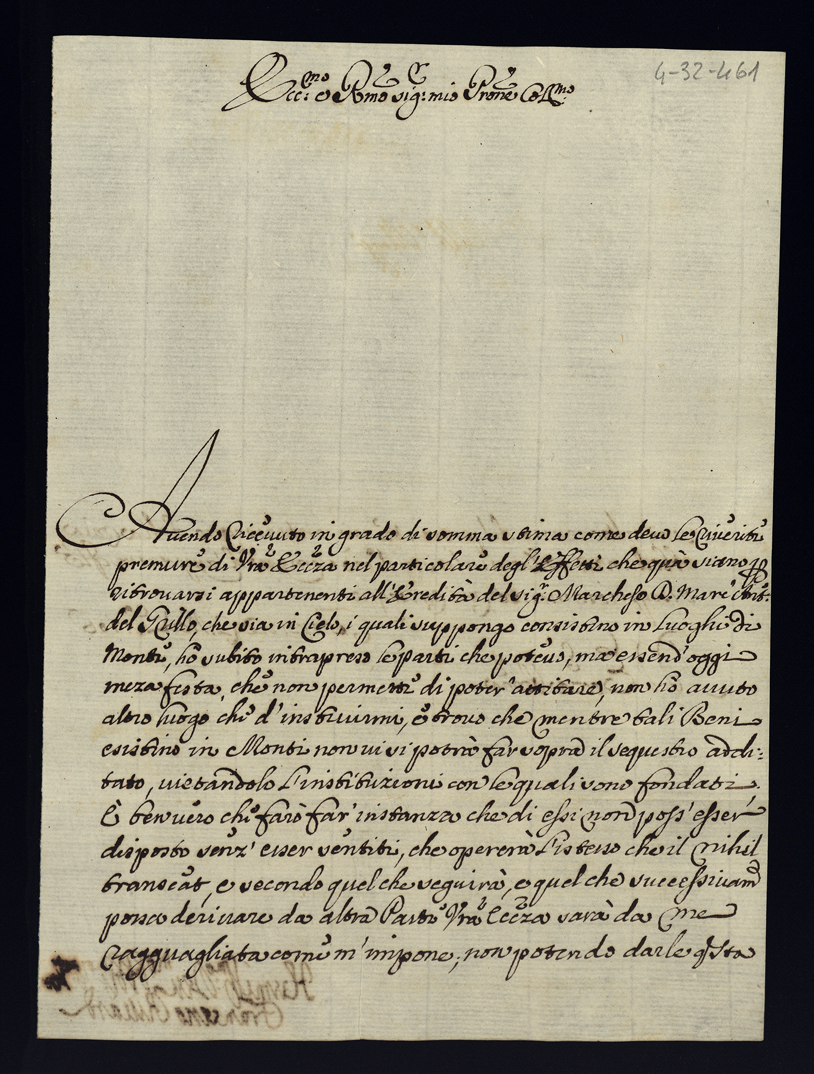 4-32-461
Ecc:mo e Rmo sig:r mio Prone Col:mo
Avendo ricevuto in grado di somma stima come devo le riverite
premure di Vra Eccza nel particolare degl'Effetti che quà siano p
ritrovarsi appartenenti all'Eredità del sig:r Marchese D. Marc'Ant:
del Grillo, che sia in Cielo, i quali suppongo consistino in Luoghi di
Monti, ho subito intrapreso le parti che potevo, ma essend'oggi
meza festa, che non permette di poter'attitare, non ho avuto
altro luogo che d'instruirmi, e trovo che mentre tali Beni
esistino in Monti non vi si potrà far sopra il sequestro addi:
tato, vietandolo l'instituzioni con le quali sono fondati.
È ben vero che farò far'instanza che di essi non poss'esser
disposto senz'esser sentiti, che opererà l'istesso che il nihil
transeat, e secondo quel che seguirà, e quel che successivam
possa derivare da altra Parte Vra Eccza sarà da me
ragguagliata come m'impone; non potendo darle qsta